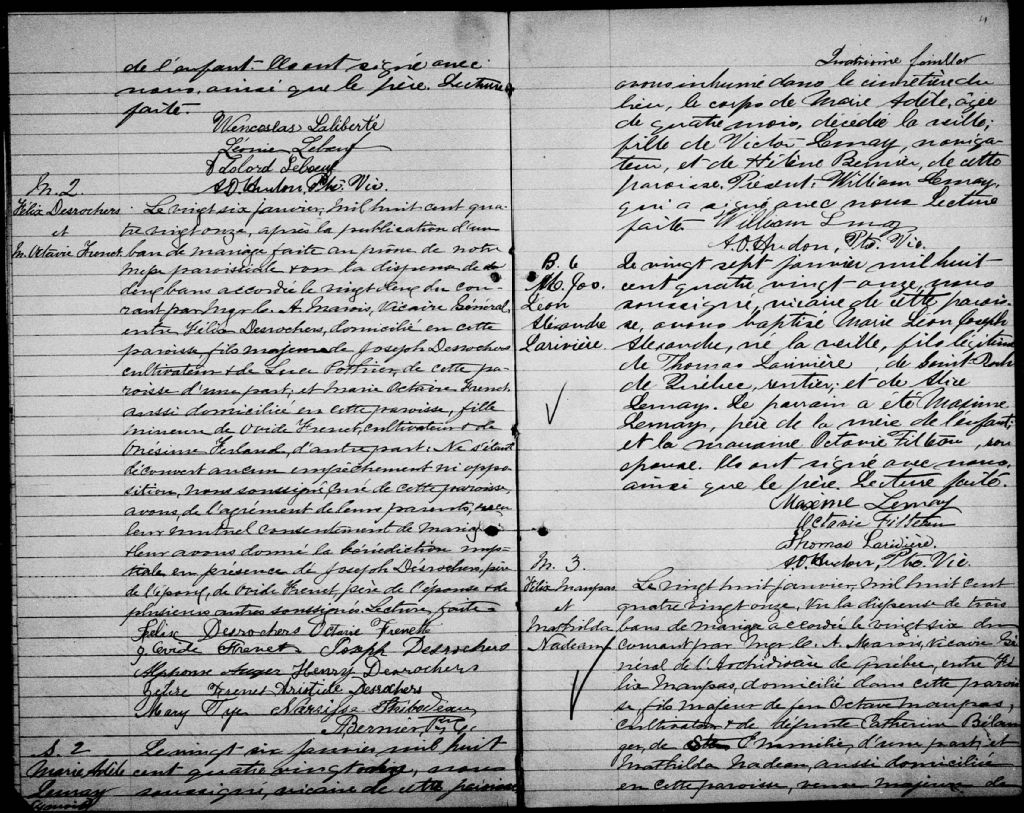 de l'enfant. Ils ont signé avec
nous, ainsi que le père. Lecture
faite.
Wenceslas Laliberté
Léonie Lebeuf
Lebeuf
A.O. Hudon, Ptre. Vic.
M. 2
Félix Desrochers
et
M. Octavie Frenet.
Le vingt six janvier, mil huit cent qua-
tre vingt onze, après la publication d'un
ban de mariage faite au prône de notre
Messe paroissiale & vu la dispense de
deux bans accordée le vingt cinq du cou-
rant par Mgr C. A. Marois, Vicaire Général,
entre Félix Desrochers, domicilié en cette
paroisse, fils majeur de Joseph Desrochers
cultivateur & de Luce Pothier, de cette pa-
roisse d'une part; et Marie Octavie Frenet,
aussi domiciliée en cette paroisse, fille
mineure de Ovide Frenet, cultivateur & de
Onésime Ferland, d'autre part: Ne s'étant
découvert aucun empêchement ni oppo-
sition, nous soussigné Curé de cette paroisse,
avons, de l'agrément de leurs parents, reçu
leur mutuel consentement de mariage
& leur avons donné la bénédiction nup-
tiale en présence de Joseph Desrochers, père
de l'époux, de Ovide Frenet, père de l'épouse & de
plusieurs autres soussignés. Lecture faite
Félix Desrochers Octavie Frenette
Ovide Frenet Joseph Desrochers
Alphonse Auger Henry Desrochers
Zélire Frenet Aristide Desrochers
Mary Tye Narsisse Thibodeau
Bernier Ptre C.
S. 2
Marie Adèle
Lemay
4 mois
Le vingt six janvier mil huit
cent quatre vingt onze, nous
soussigné, vicaire de cette paroisse
4
Quatrième feuillet
avons inhumé dans le cimetière du
lieu, le corps de Marie Adèle, âgée
de quatre mois, décédée la veille;
fille de Victor Lemay, naviga-
teur, et de Hélène Bernier, de cette
paroisse. Présent: William Lemay,
qui a signé avec nous Lecture
faite William Lemay
A.O. Hudon, Ptre. Vic.
B. 6
M. Jos.
Léon
Alexandre
Larivière.
Le vingt sept janvier mil huit
cent quatre vingt onze, nous
soussigné, vicaire de cette parois-
se, avons baptisé Marie Léon Joseph
Alexandre, né la veille, fils légitime
de Thomas Larivière, de Saint Roch
de Québec, rentier; et de Alice
Lemay. Le parrain a été Maxime
Lemay, père de la mère de l'enfant;
et la marraine Octavie Filteau, son
épouse. Ils ont signé avec nous,
ainsi que le père. Lecture faite.
Maxime Lemay
Octavie Filteau
Thomas Larivière.
A.O. Hudon, Ptre. Vic.
M. 3.
Félix Maupas
et
Mathilda
Nadeau
Le vingt huit janvier, mil huit cent
quatre vingt onze, Vu la dispense de trois
bans de mariage accordée le vingt six du
courant par Mgr C. A. Marois, Vicaire Gé-
néral de l'Archidiocèse de Québec, entre Fé-
lix Maupas, domicilié dans cette parois-
se, fils majeur de feu Octave Maupas,
cultivateur & de défunte Catherine Bélan-
ger, de Ste Emmélie, d'une part; et
Mathilda Nadeau, aussi domiciliée
en cette paroisse, veuve majeure de